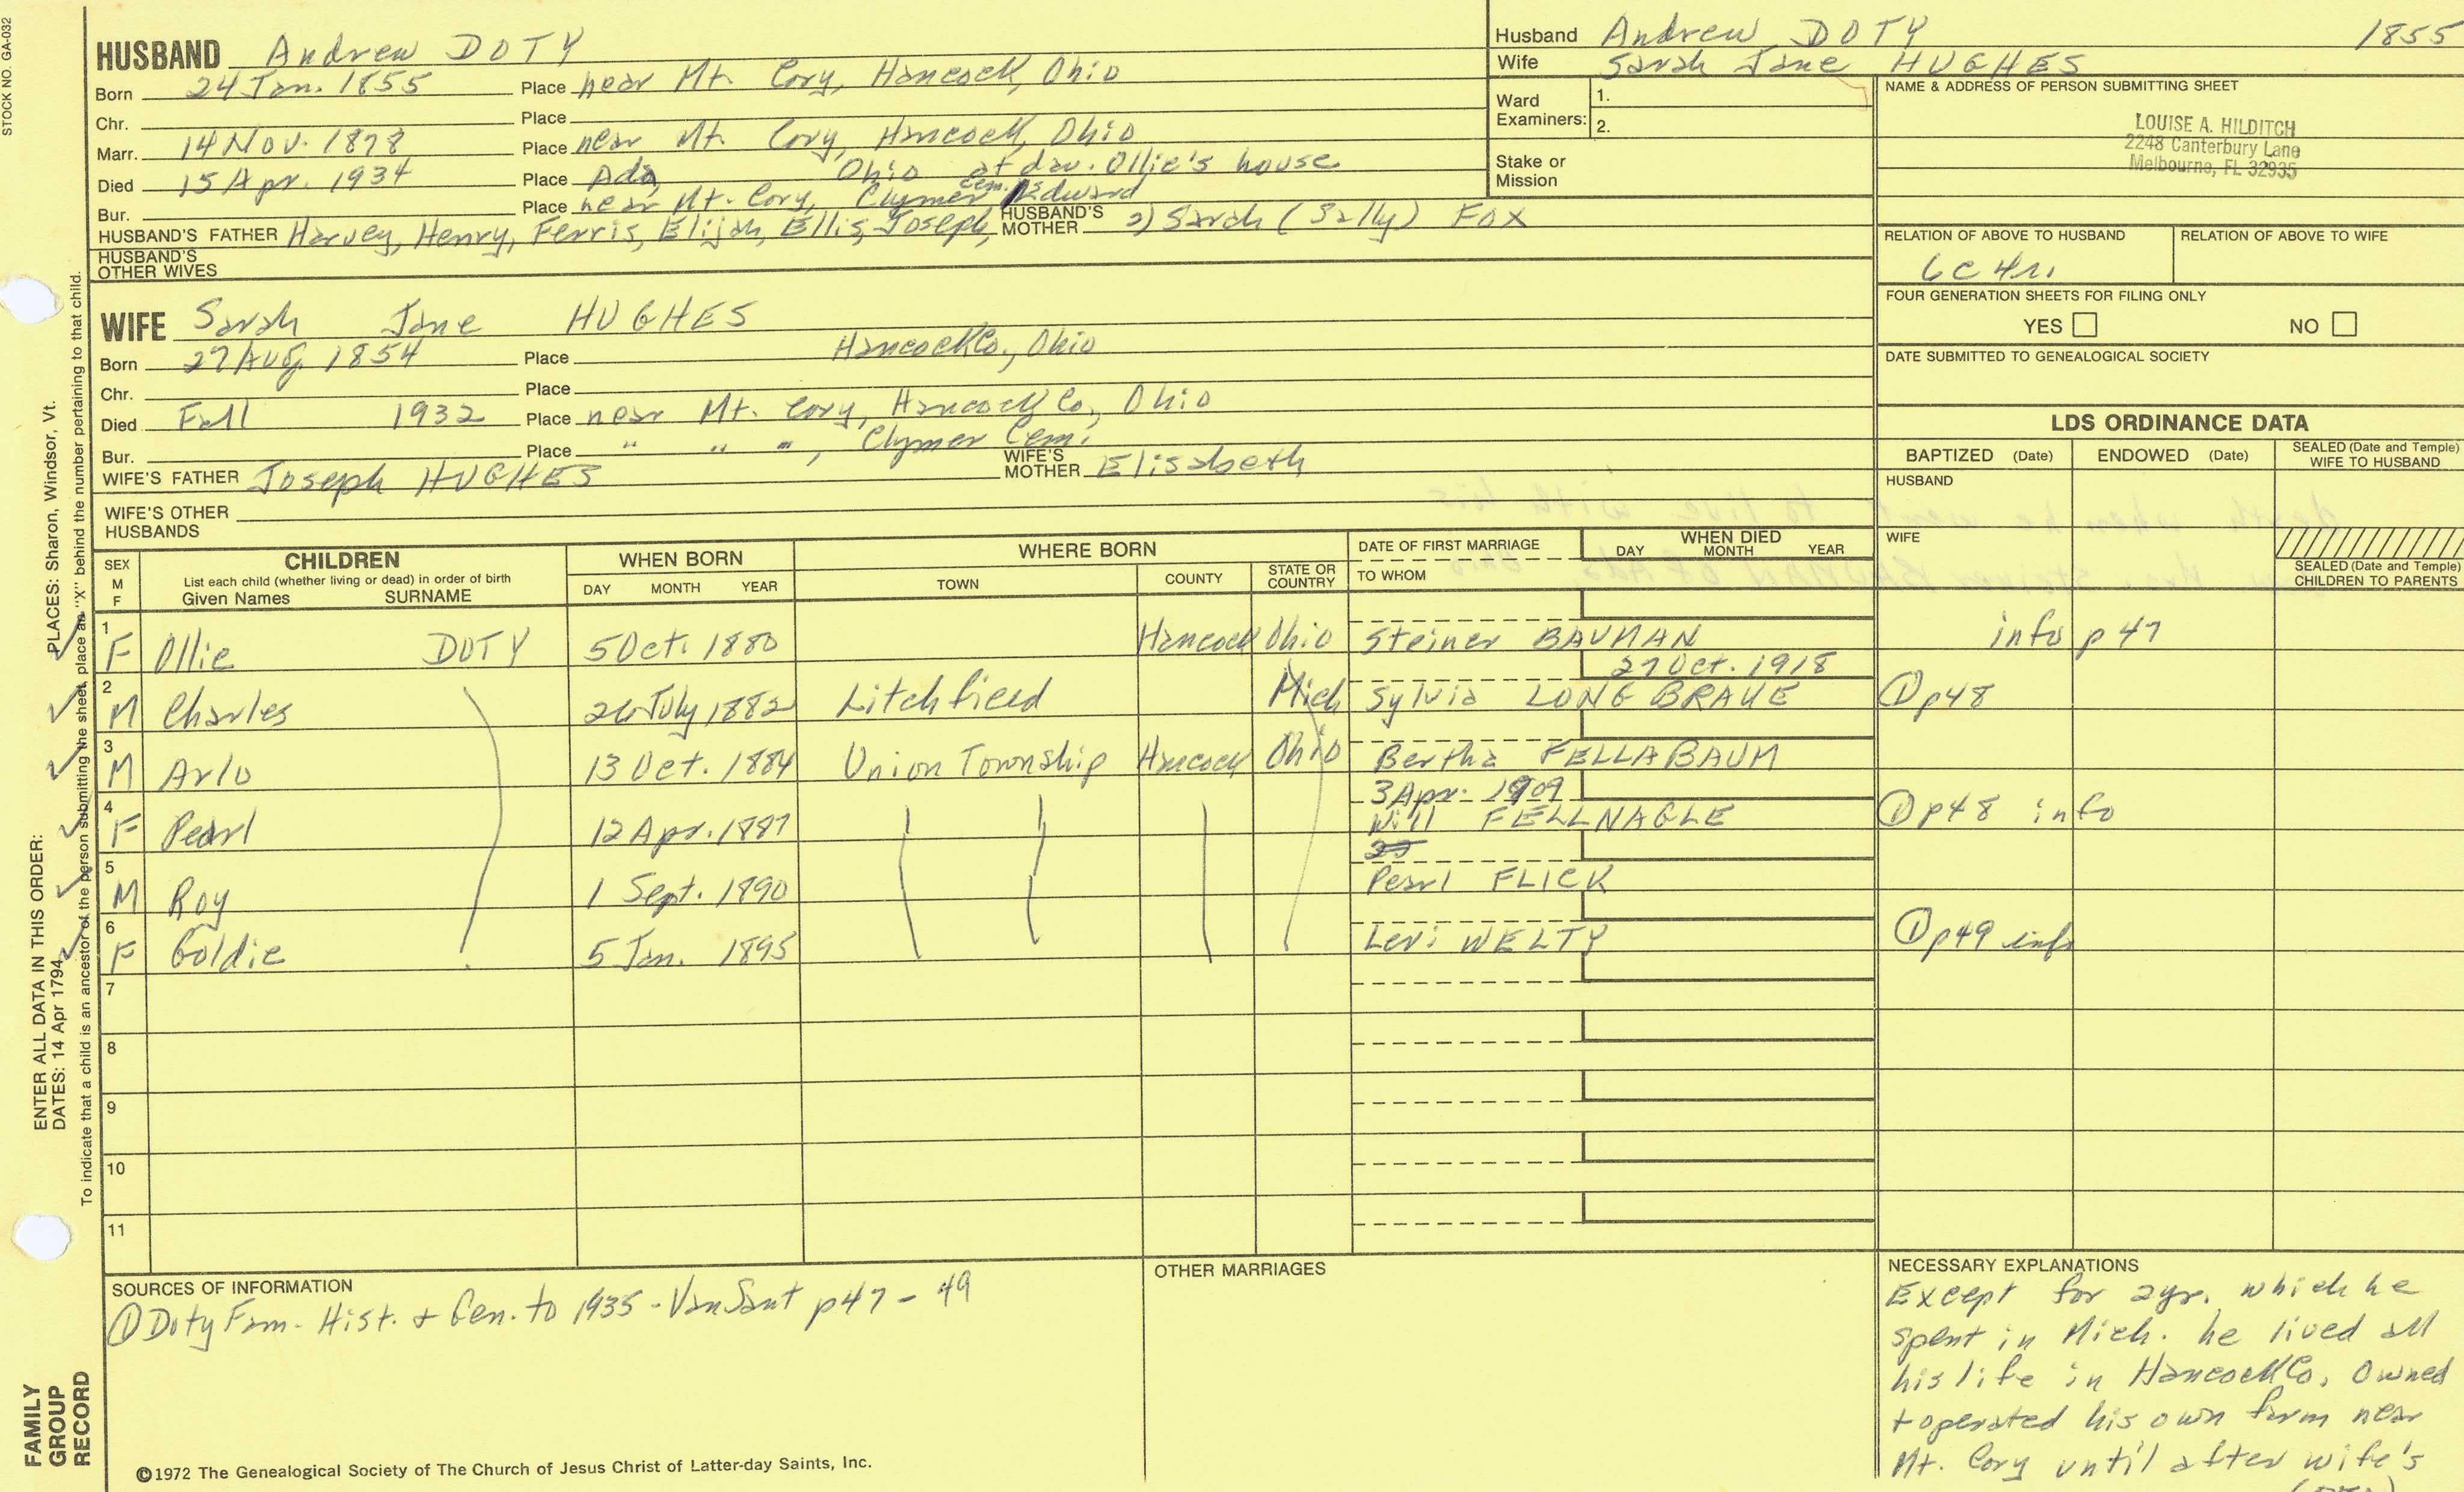 STOCK NO. GA-032
HUSBAND Andrew DOTY
Born 24 Jan. 1855 Place near Mt. Cory, Hancock, Ohio
Chr. Place
Marr. 14 Nov. 1878 Place near Mt. Cory, Hancock, Ohio
Died 15 Apr. 1934 Place Ada, Ohio at dau. Ollie's house
Bur. Place near Mt. Cory, Clymer Cem.
HUSBAND'S FATHER Harvey, Henry, Ferris, Elijah, Ellis, Joseph, Edward HUSBAND'S MOTHER 2) Sarah (Sally) FOX
HUSBAND'S OTHER WIVES
WIFE Sarah Jane HUGHES
Born 27 Aug. 1854 Place Hancock Co., Ohio
Chr. Place
Died Fall 1932 Place near Mt. Cory, Hancock Co., Ohio
Bur. Place " " ", Clymer Cem.
WIFE'S FATHER Joseph HUGHES WIFE'S MOTHER Elisabeth
WIFE'S OTHER HUSBANDS
Husband Andrew DOTY 1855
Wife Sarah Jane HUGHES
Ward Examiners: 1.
2.
Stake or Mission
NAME & ADDRESS OF PERSON SUBMITTING SHEET
LOUISE A. HILDITCH
2248 Canterbury Lane
Melbourne, FL 32935
RELATION OF ABOVE TO HUSBAND RELATION OF ABOVE TO WIFE
6C 4r.
FOUR GENERATION SHEETS FOR FILING ONLY
YES NO
DATE SUBMITTED TO GENEALOGICAL SOCIETY
LDS ORDINANCE DATA
BAPTIZED (Date) ENDOWED (Date) SEALED (Date and Temple) WIFE TO HUSBAND
HUSBAND
WIFE
SEALED (Date and Temple) CHILDREN TO PARENTS
SEX M F CHILDREN List each child (whether living or dead) in order of birth Given Names SURNAME WHEN BORN DAY MONTH YEAR WHERE BORN TOWN COUNTY STATE OR COUNTRY DATE OF FIRST MARRIAGE TO WHOM WHEN DIED DAY MONTH YEAR
1 F Ollie DOTY 5 Oct. 1880 Hancock Ohio Steiner BAUMAN info p 47
27 Oct. 1918
2 M Charles 26 July 1882 Litchfield Mich Sylvia LONGBRAKE ① p48
3 M Arlo 13 Oct. 1884 Union Township Hancock Ohio Bertha FELLABAUM
3 Apr. 1909
4 F Pearl 12 Apr. 1887 Will FELLNAGLE ① p48 info
5 M Roy 1 Sept. 1890 Pearl FLICK
6 F Goldie 5 Jan. 1895 Levi WELTY ① p49 info
7
8
9
10
11
SOURCES OF INFORMATION
① Doty Fam. Hist. + Gen. to 1935 - VanSant p47 - 49
OTHER MARRIAGES
NECESSARY EXPLANATIONS
Except for 2yr. which he
spent in Mich. he lived all
his life in Hancock Co. Owned
+ operated his own farm near
Mt. Cory until after wife's
©1972 The Genealogical Society of The Church of Jesus Christ of Latter-day Saints, Inc.
ENTER ALL DATA IN THIS ORDER:
DATES: 14 Apr 1794 PLACES: Sharon, Windsor, Vt.
To indicate that a child is an ancestor of the person submitting the sheet, place an "X" behind the number pertaining to that child.
FAMILY
GROUP
RECORD